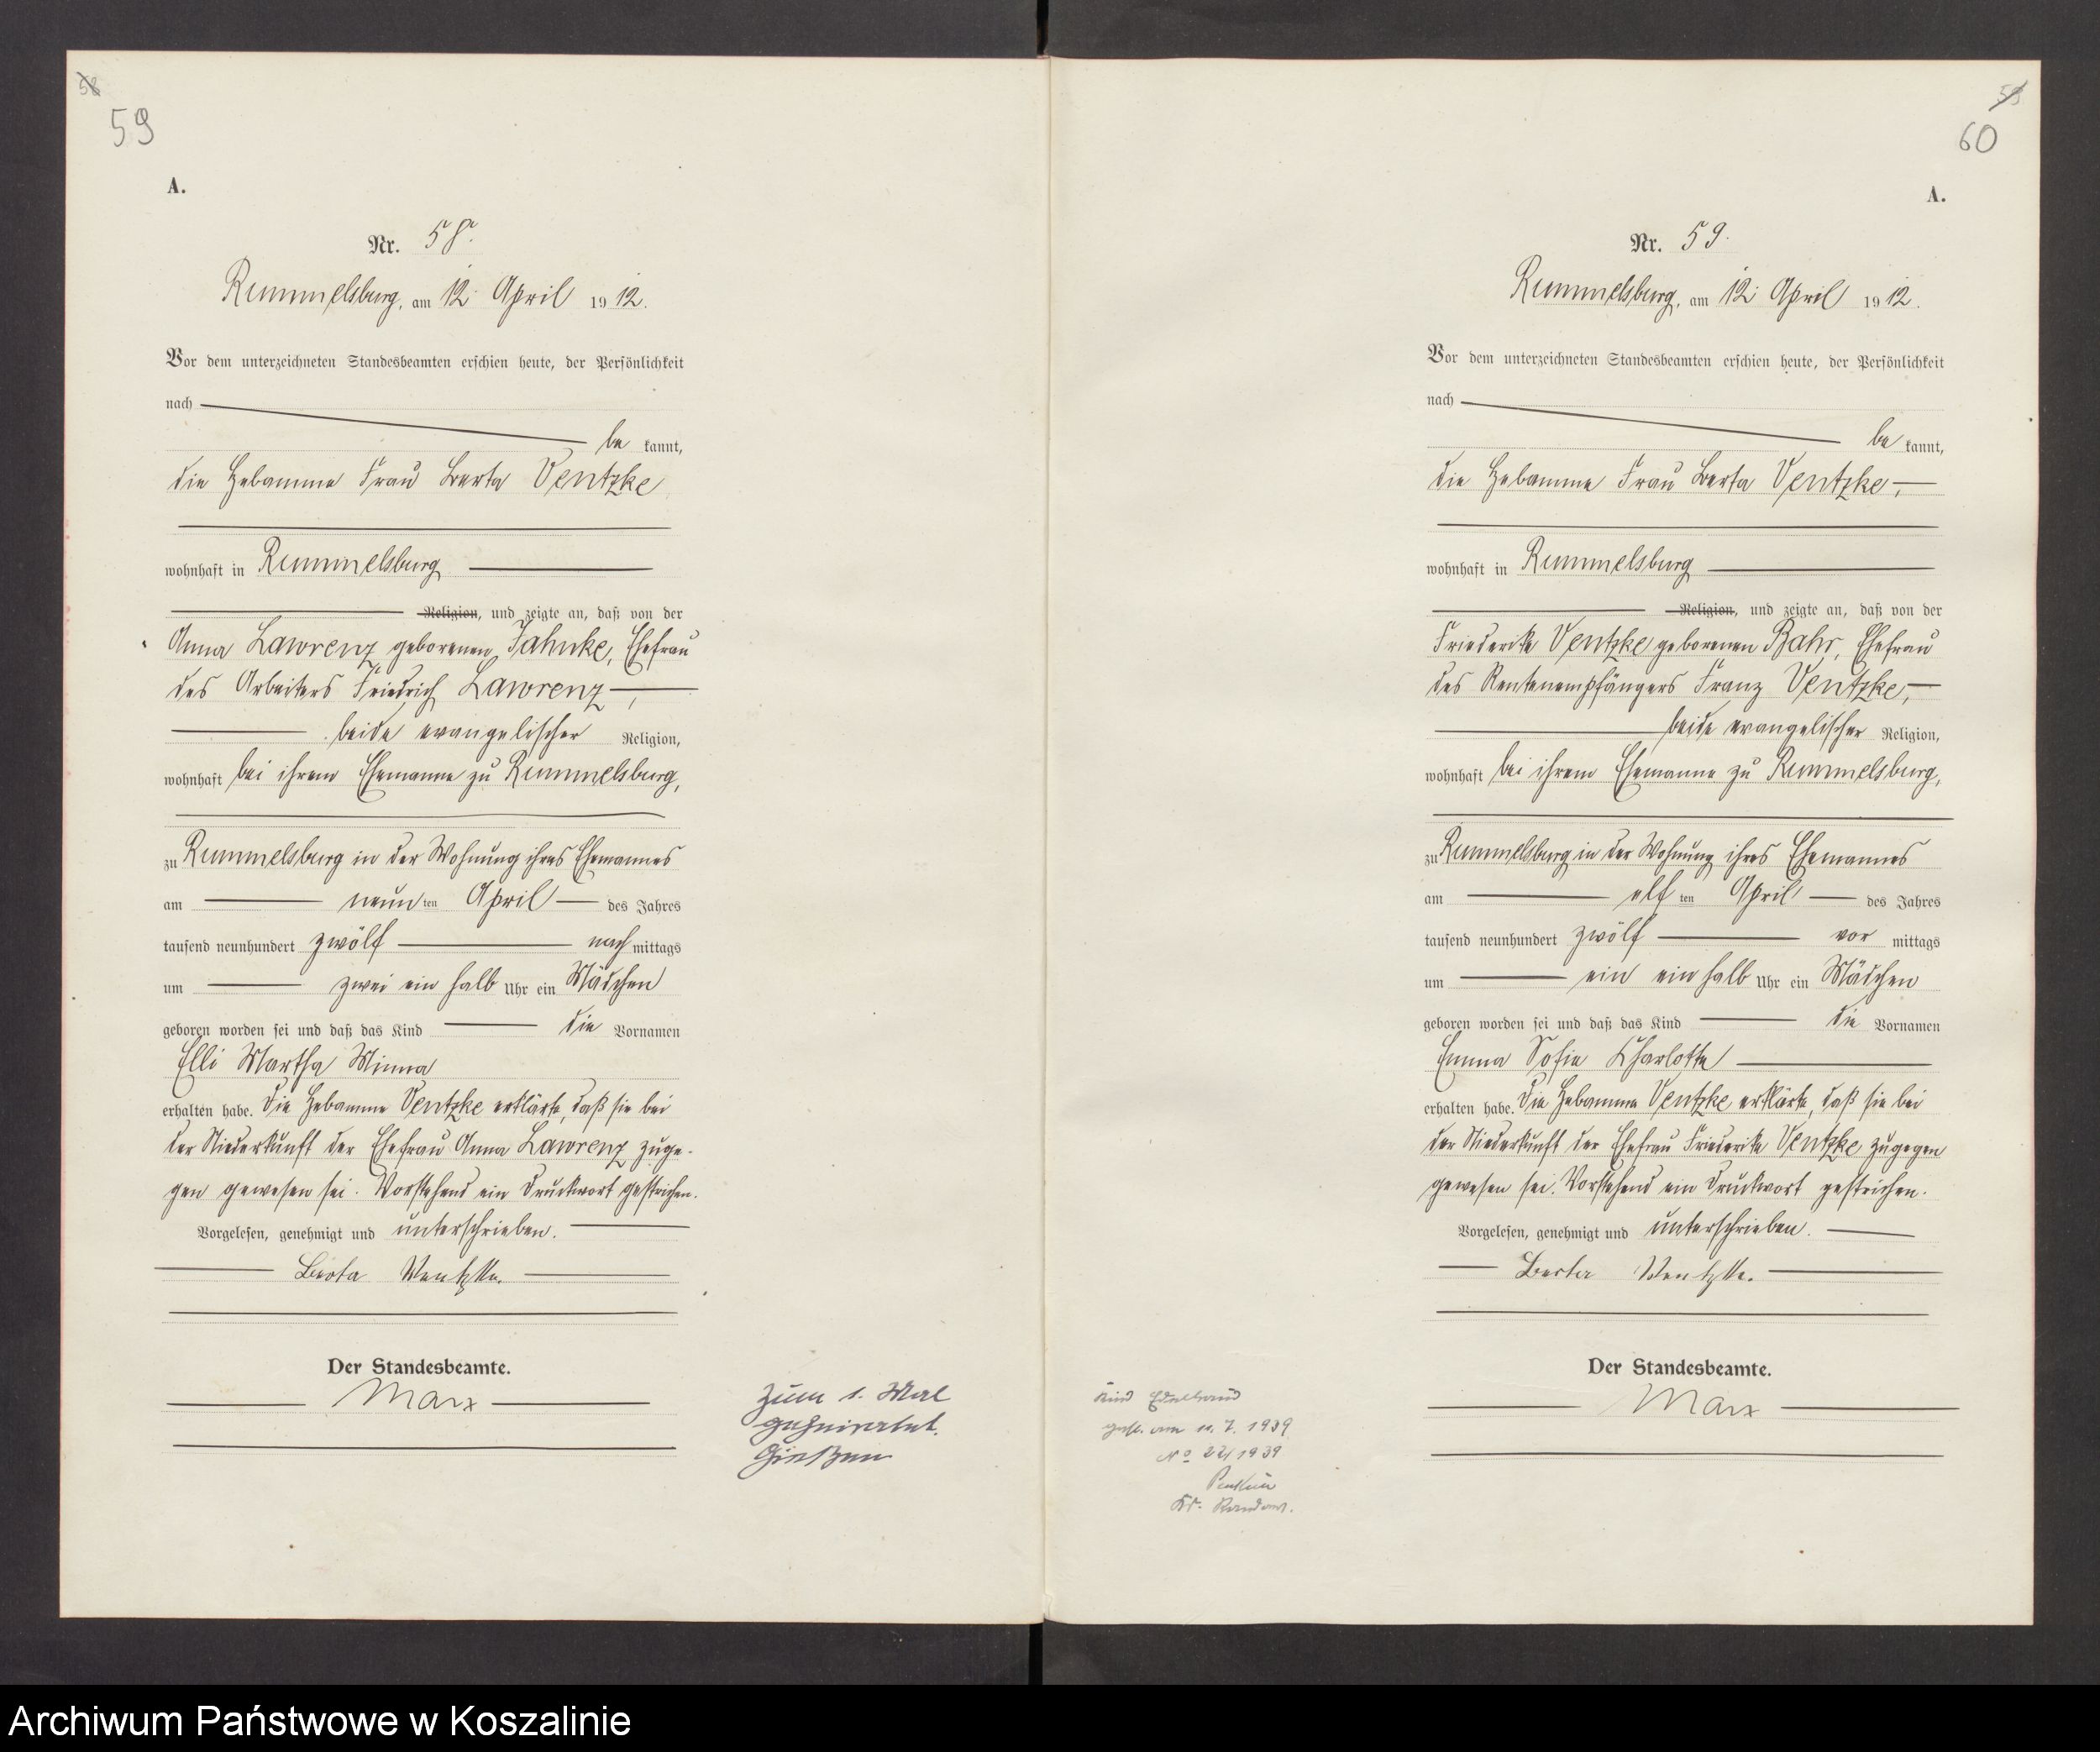 58
59
A.
Nr. 58.
Rummelsburg, am 12. April 1912.
Vor dem unterzeichneten Standesbeamten erschien heute, der Persönlichkeit
nach
be kannt,
die Hebamme Frau Berta Ventzke
wohnhaft in Rummelsburg
Religion, und zeigte an, daß von der
Anna Lawrenz geborenen Jahnke, Ehefrau
des Arbeiters Friedrich Lawrenz,
beide evangelischer Religion,
wohnhaft bei ihrem Ehemanne zu Rummelsburg,
zu Rummelsburg in der Wohnung ihres Ehemannes
am neun ten April des Jahres
tausend neunhundert zwölf nach mittags
um zwei ein halb Uhr ein Mädchen
geboren worden sei und daß das Kind die Vornamen
Elli Martha Minna
erhalten habe. Die Hebamme Ventzke erklärte, daß sie bei
der Niederkunft der Ehefrau Anna Lawrenz zuge-
gen gewesen sei. Vorstehend ein Druckwort gestrichen.
Vorgelesen, genehmigt und unterschrieben.
Berta Ventzke.
Der Standesbeamte.
Marx
Zum 1. Mal
geheiratet.
Gießen
59
60
A.
Nr. 59.
Rummelsburg, am 12. April 1912.
Vor dem unterzeichneten Standesbeamten erschien heute, der Persönlichkeit
nach
be kannt,
die Hebamme Frau Berta Ventzke,
wohnhaft in Rummelsburg
Religion, und zeigte an, daß von der
Friederike Ventzke geborenen Bahr, Ehefrau
des Rentenempfängers Franz Ventzke,
beide evangelischer Religion,
wohnhaft bei ihrem Ehemanne zu Rummelsburg,
zu Rummelsburg in der Wohnung ihres Ehemannes
am elf ten April des Jahres
tausend neunhundert zwölf vor mittags
um ein ein halb Uhr ein Mädchen
geboren worden sei und daß das Kind die Vornamen
Emma Sofie Charlotte
erhalten habe. Die Hebamme Ventzke erklärte, daß sie bei
der Niederkunft der Ehefrau Friederike Ventzke zugegen
gewesen sei. Vorstehend ein Druckwort gestrichen.
Vorgelesen, genehmigt und unterschrieben.
Berta Ventzke.
Der Standesbeamte.
Marx
Kind Edeltraud
geb. am 7. 1939
No 22/1939
Penkun
Kr. Randow.
Archiwum Państwowe w Koszalinie